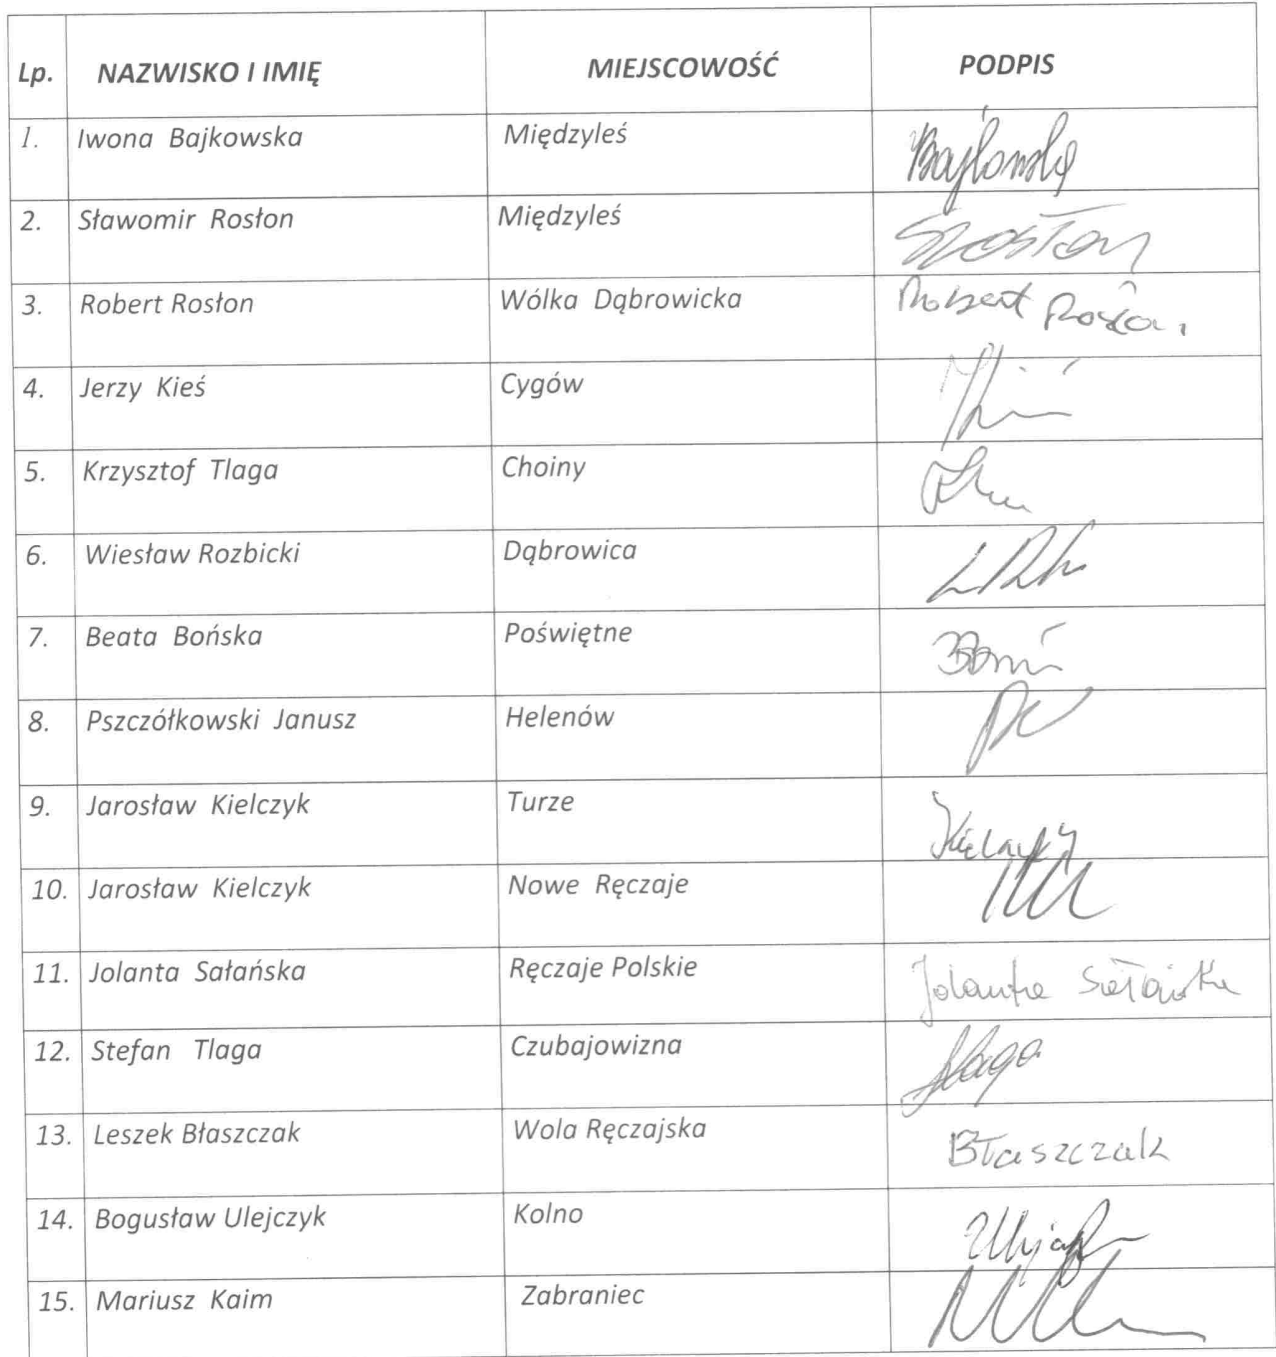 Lp. NAZWISKO I IMIĘ MIEJSCOWOŚĆ PODPIS
1. Iwona Bajkowska Międzyleś Bajkowska
2. Sławomir Rosłon Międzyleś SRosłon
3. Robert Rosłon Wólka Dąbrowicka Robert Rosłon
4. Jerzy Kieś Cygów
5. Krzysztof Tlaga Choiny
6. Wiesław Rozbicki Dąbrowica
7. Beata Bońska Poświętne
8. Pszczółkowski Janusz Helenów
9. Jarosław Kielczyk Turze Kielczyk
10. Jarosław Kielczyk Nowe Ręczaje
11. Jolanta Sałańska Ręczaje Polskie Jolanta Sałańska
12. Stefan Tlaga Czubajowizna Tlaga
13. Leszek Błaszczak Wola Ręczajska Błaszczak
14. Bogusław Ulejczyk Kolno
15. Mariusz Kaim Zabraniec